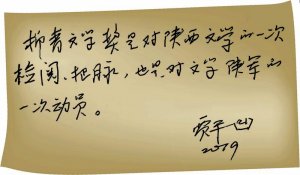 柳青文学奖是对陕西文学的一次
检阅、把脉，也是对文学陕军的
一次动员。
贾平凹
2019